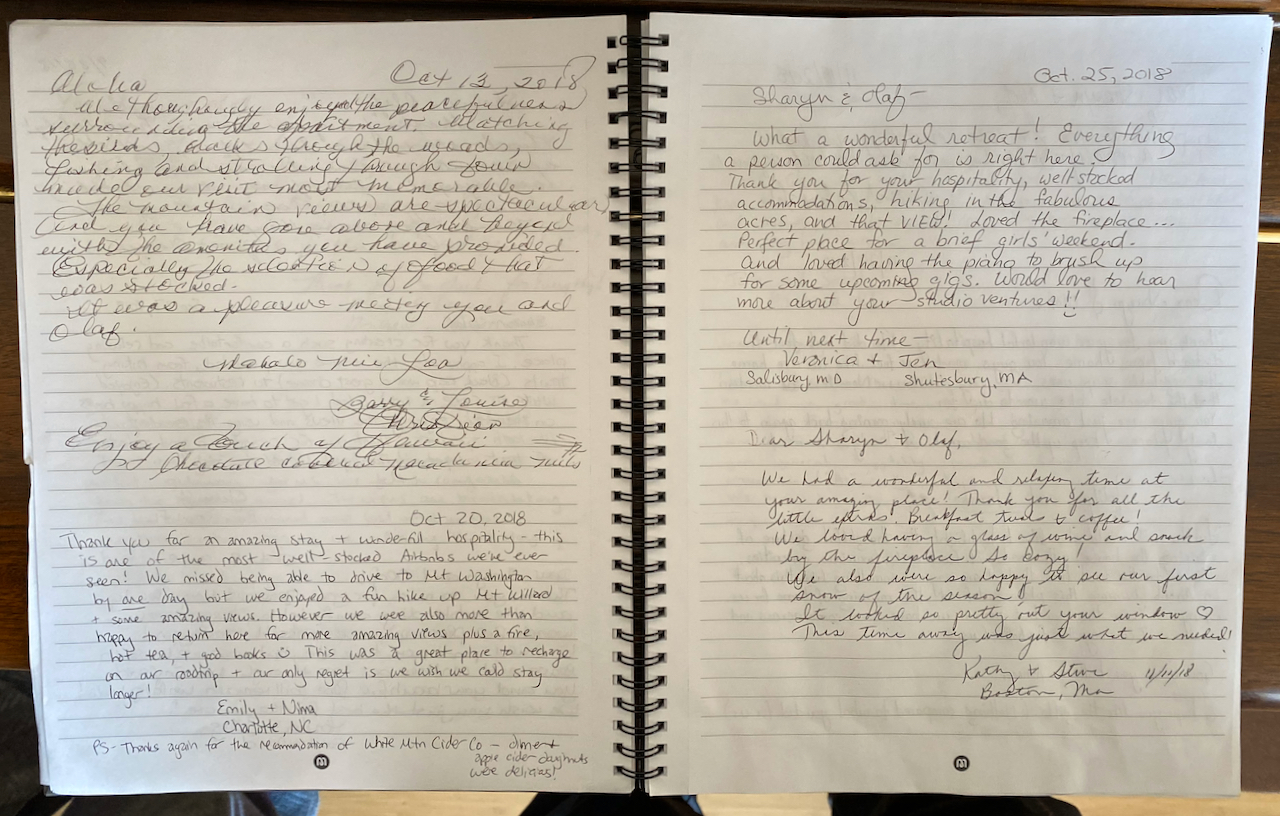 Oct 13, 2018
Aloha
We thoughougly enjoyed the peacefulness
surrounding the apartment. Watching
the birds, ducks through the woods,
fishing and strolling through town
made our visit most memorable.
The mountain views are spectacular,
and you have gone above and beyond
with the amenities you have provided.
Especially the selection of food that
was stocked.
It was a pleasure meeting you and
Olaf.
Mahalo Nui Loa
Barry & Louise
Enjoy a Touch of Hawaii
Chocolate covered Macadamia Nuts
Oct 20, 2018
Thank you for an amazing stay + wonderfull hospitality - this
is one of the most well-stocked Airbnbs we've ever
seen! We missed being able to drive to Mt Washington
by one day but we enjoyed a fun hike up Mt Willard
+ some amazing views. However we were also more than
happy to return here for more amazing views plus a fire,
hot tea, + good books ☺ This was a great place to recharge
on our roadtrip + our only regret is we wish we could stay
longer!
Emily + Nima
Charlotte, NC
PS- Thanks again for the recommendation of White Mtn Cider Co - dinner +
apple cider doughnuts
were delicious!
Oct. 25, 2018
Sharyn & Olaf-
What a wonderful retreat! Everything
a person could ask for is right here!
Thank you for your hospitality, well-stocked
accommodations, hiking in the fabulous
acres, and that VIEW! Loved the fireplace...
Perfect place for a brief girls' weekend.
And loved having the piano to brush up
for some upcoming gigs. Would love to hear
more about your studio ventures!!
Until next time-
Veronica + Jen
Salisbury, MD Shutesbury, MA
Dear Sharyn + Olaf,
We had a wonderful and relaxing time at
your amazing place! Thank you for all the
little extras! Breakfast treats & coffee!
We loved having a glass of wine and snack
by the fireplace. So cozy!
We also were so happy to see our first
snow of the season!
It looked so pretty out your window ♡
This time away was just what we needed!
Kathy & Steve 11/11/18
Boston, Ma